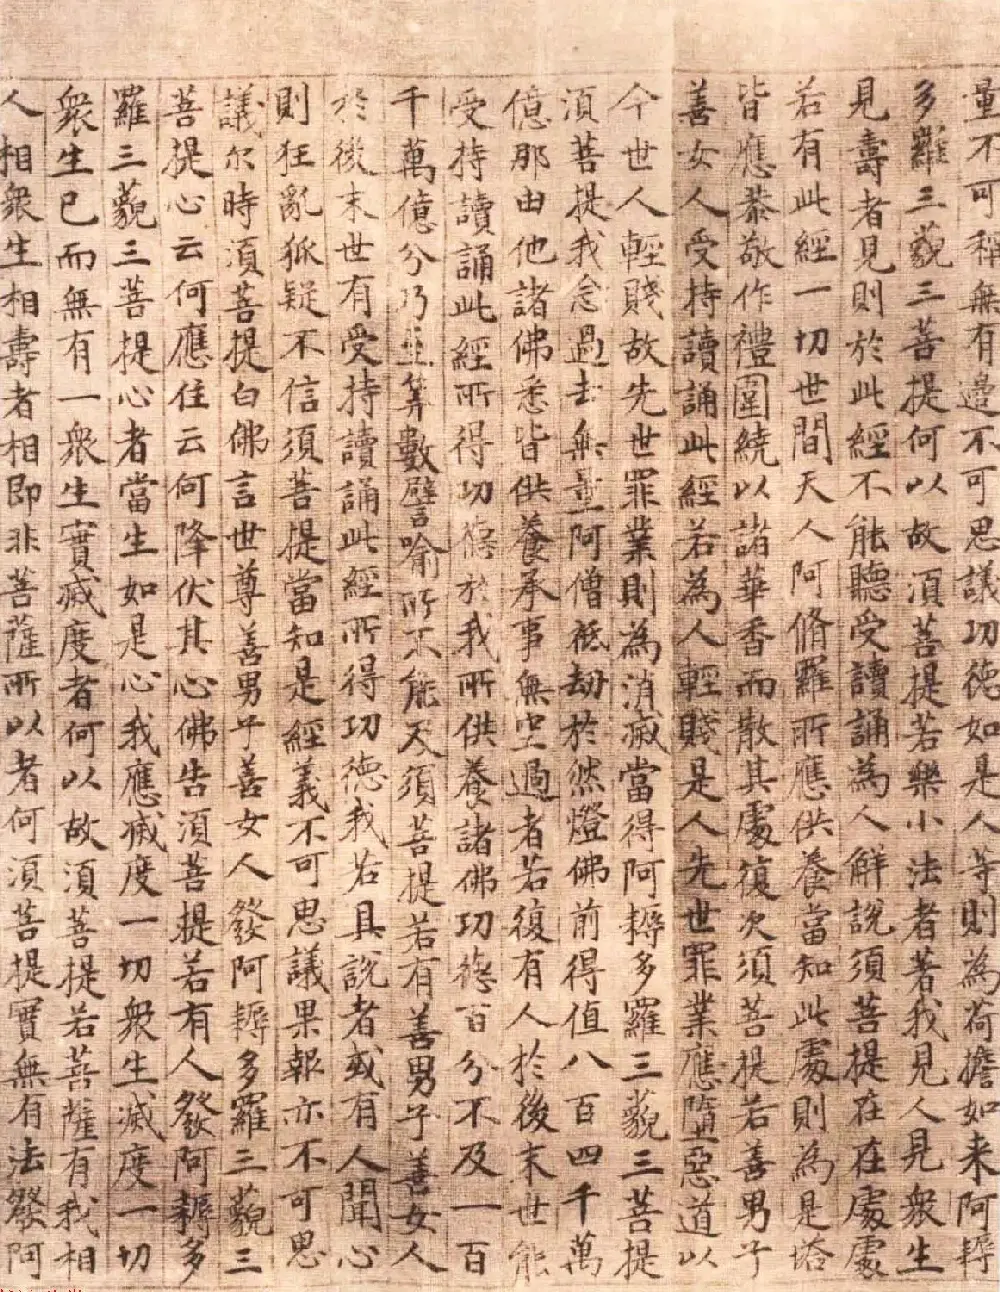 量不可稱無有邊不可思議功德如是人等則為荷擔如来阿耨
多羅三藐三菩提何以故須菩提若樂小法者著我見人見衆生
見壽者見則於此經不能聽受讀誦為人解說須菩提在在處處
若有此經一切世間天人阿脩羅所應供養當知此處則為是塔
皆應恭敬作禮圍繞以諸華香而散其處復次須菩提若善男子
善女人受持讀誦此經若為人輕賤是人先世罪業應墮惡道以
今世人輕賤故先世罪業則為消滅當得阿耨多羅三藐三菩提
須菩提我念過去無量阿僧祇劫於然燈佛前得值八百四千萬
億那由他諸佛悉皆供養承事無空過者若復有人於後末世能
受持讀誦此經所得功德於我所供養諸佛功德百分不及一百
千萬億分乃至筭數譬喻所不能及須菩提若有善男子善女人
於後末世有受持讀誦此經所得功德我若具說者或有人聞心
則狂亂狐疑不信須菩提當知是經義不可思議果報亦不可思
議尔時須菩提白佛言世尊善男子善女人發阿耨多羅三藐三
菩提心云何應住云何降伏其心佛告須菩提若有人發阿耨多
羅三藐三菩提心者當生如是心我應滅度一切衆生滅度一切
衆生已而無有一衆生實滅度者何以故須菩提若菩薩有我相
人相衆生相壽者相即非菩薩所以者何須菩提實無有法發阿